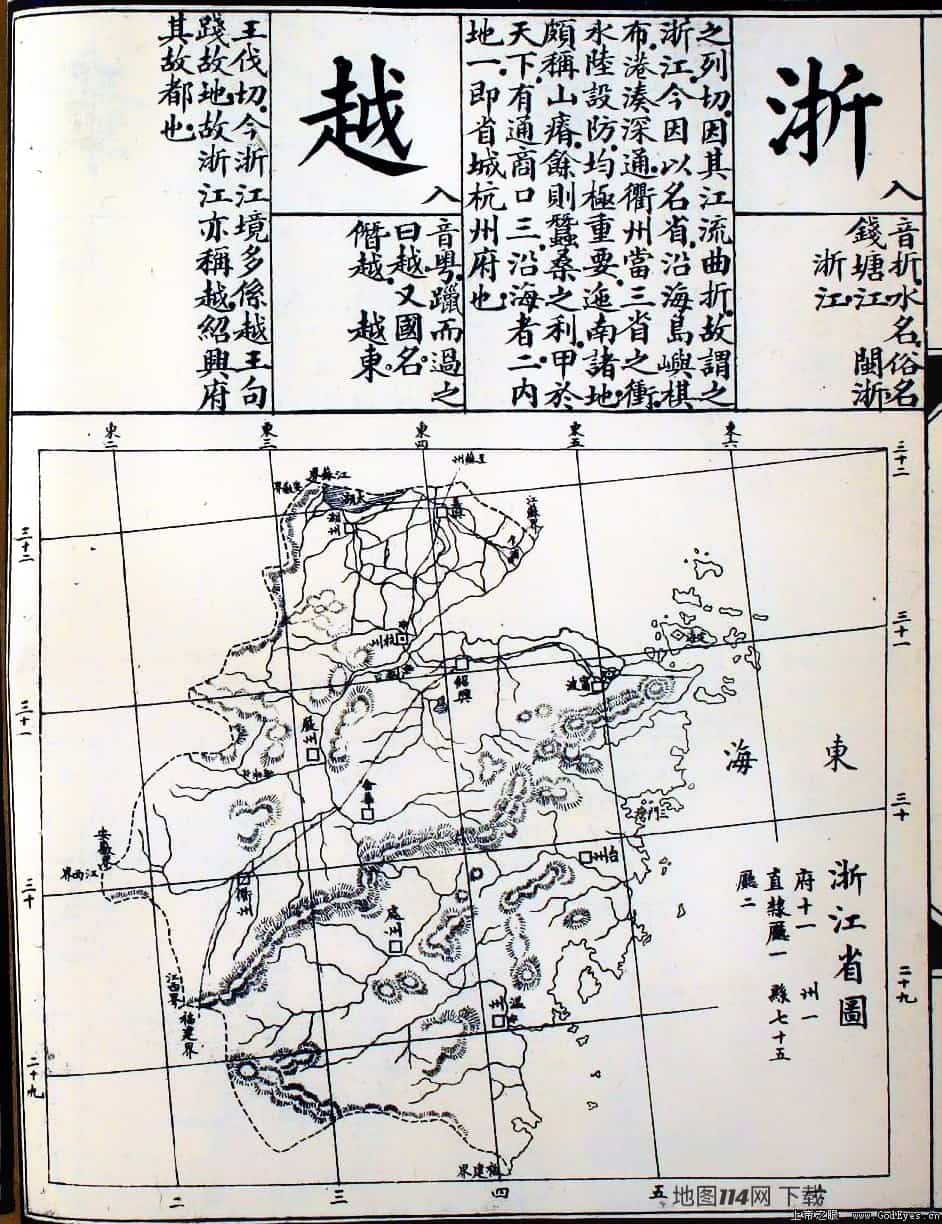 浙
入
音折.水名.俗名
錢塘江.閩浙
浙江.
之列切.因其江流曲折.故謂之
浙江.今因以名省.沿海島嶼棋
布.港湊深通.衢州當三省之衝.
水陸設防.均極重要.迤南諸地.
頗稱山瘠.餘則蠶桑之利.甲於
天下.有通商口三.沿海者二.內
地一.即省城杭州府也.
越
入
音粵.躐而過之
曰越.又國名.
僭越.越東.
王伐切.今浙江境多係越王句
踐故地.故浙江亦稱越.紹興府
其故都也.
東二
東三
東四
東五
東六
三十二
三十一
三十
二十九
三十二
三十一
三十
二十九
二
三
四
五
江蘇界
安徽界
太湖
湖州
至蘇州
嘉興
江蘇界
杭州
紹興
寧波
定海
嚴州
金華
衢州
安徽界
江西界
處州
台州
三門灣
溫州
江西界
福建界
福建界
東海
浙江省圖
府十一 州一
直隸廳一 縣七十五
廳二
地图114网 下载
上帝之眼 www.GodEyes.cn